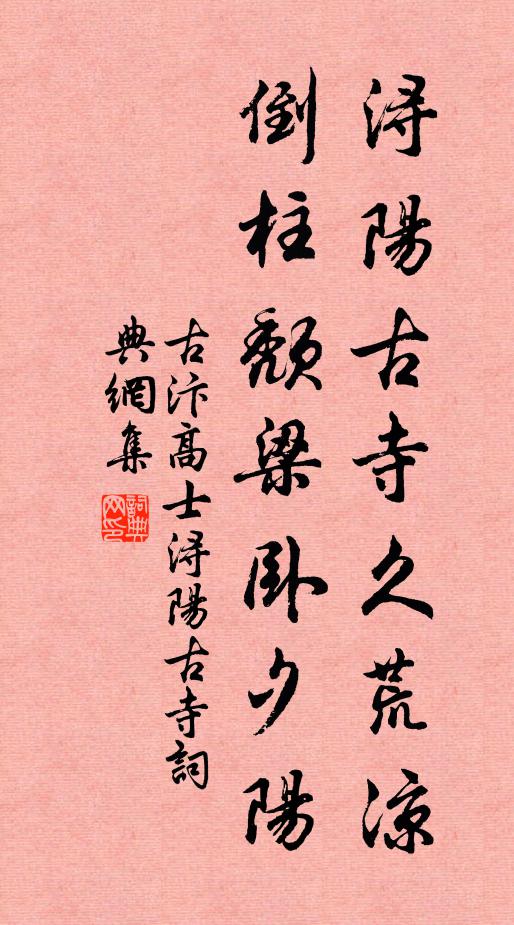 浔陽古寺久荒凉
倒柱頹梁卧夕陽
古汴高士浔陽古寺詞
典網集
詞典网印